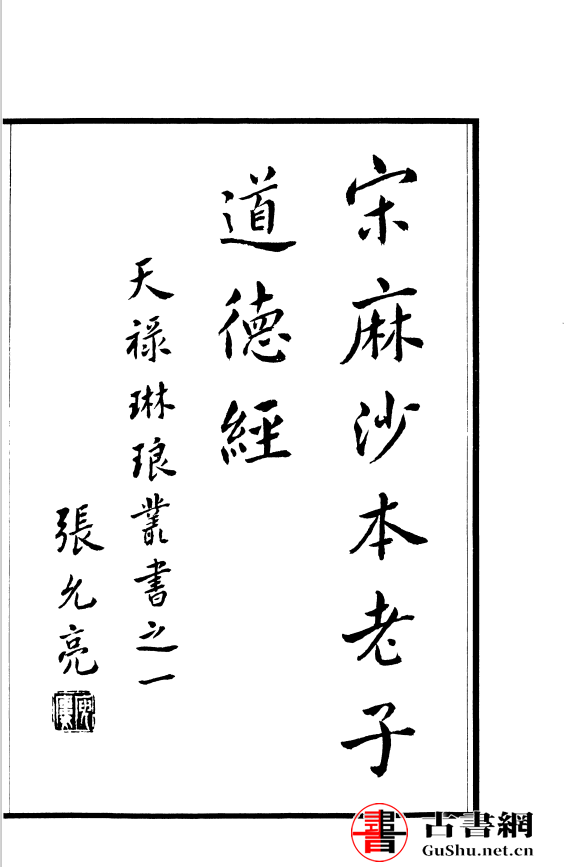 宋麻沙本老子
道德經
天祿琳琅叢書之一
張允亮
書 古書網
GuShu.net.cn